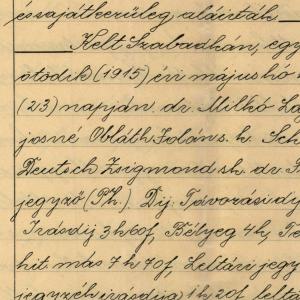 éssajátkezűleg aláírták
Kelt Szabadkán, egy
ötödik (1915) évi május hó
(23) napján. dr. Milkó La
josné Obláth Jolán s. k. Sch
Deutsch Zsigmond sh. dr.
jegyző (Ph.) Díj: Távorási dy
Irásdij 3 h 60 f, Bélyeg 4 h, Te
hit más 7 h 70 f, Leltári jegy
jegyzék irásdija 1 h 20 f leltá